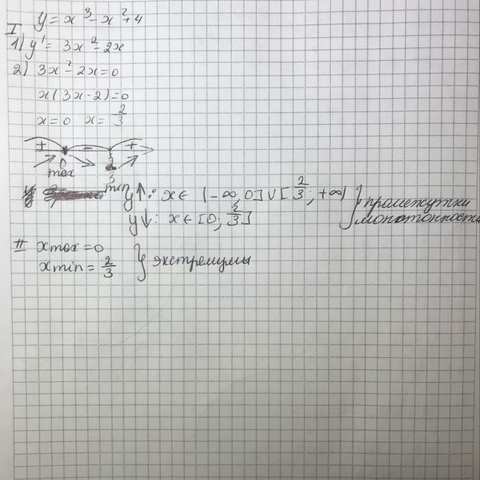 y = x³ - x² + 4
I
1) y' = 3x² - 2x
2) 3x² - 2x = 0
x(3x - 2) = 0
x = 0 x = 2/3
+ - +
0 2/3
max min
y↑: x ∈ (-∞; 0] ∪ [2/3; +∞) } промежутки
y↓: x ∈ [0; 2/3] монотонности
II xmax = 0
xmin = 2/3 } экстремумы